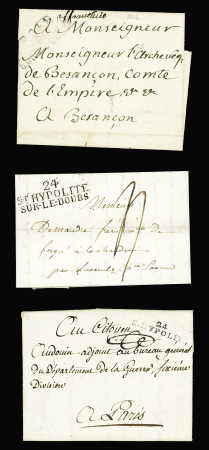 A Monseigneur
Monseigneur l'archevêq
de Besançon, comte
de l'Empire &a &a
A Besançon
24
ST HYPOLITE
SUR-LE-DOUBS
Monsieur
Demandre
forge
par Luxeuil
Au Citoyen
24
ST HYPOLITE
Audouin adjoint au bureau general
Du Département de la Guerre, sixieme
Division
A Paris